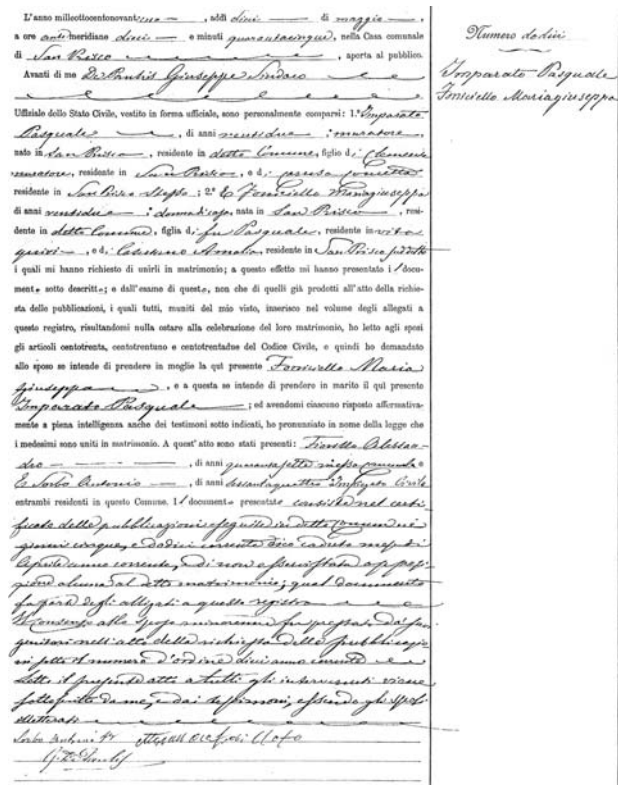 L'anno millottocentonovantuno, addì dieci di maggio,
a ore antimeridiane dieci e minuti quarantacinque, nella Casa comunale
di San Prisco, aperta al pubblico.
Avanti di me De Paulis Giuseppe Sindaco
Uffiziale dello Stato Civile, vestito in forma ufficiale, sono personalmente comparsi: 1.° Imparato
Pasquale, di anni ventidue, muratore,
nato in San Prisco, residente in detto Comune, figlio di Clemente
muratore, residente in San Prisco, e di
residente in San Prisco stesso; 2.° E Foniciello Mariagiuseppa
di anni ventidue, donna di casa, nata in San Prisco, resi-
dente in detto Comune, figlia di fu Pasquale, residente in vita
quivi, e di Amalia, residente in San Prisco predetto
i quali mi hanno richiesto di unirli in matrimonio; a questo effetto mi hanno presentato il docu-
mento sotto descritto; e dall'esame di questo, non che di quelli già prodotti all'atto della richie-
sta delle pubblicazioni, i quali tutti, muniti del mio visto, inserisco nel volume degli allegati a
questo registro, risultandomi nulla ostare alla celebrazione del loro matrimonio, ho letto agli sposi
gli articoli centotrenta, centotrentuno e centotrentadue del Codice Civile, e quindi ho domandato
allo sposo se intende di prendere in moglie la qui presente Foniciello Maria
Giuseppa, e a questa se intende di prendere in marito il qui presente
Imparato Pasquale; ed avendomi ciascuno risposto affermativa-
mente a piena intelligenza anche dei testimoni sotto indicati, ho pronunziato in nome della legge che
i medesimi sono uniti in matrimonio. A quest'atto sono stati presenti: Fiorillo Alessan-
dro, di anni quarantasette messo comunale e
E Sorbo Antonio, di anni sessantaquattro Impiegato Civile
entrambi residenti in questo Comune. Il documento presentato consiste nel certi-
ficato delle pubblicazioni eseguite in detto Comune nei
giorni cinque, e dodici corrente dico caduto mese di
Aprile anno corrente, e di non esservi stata opposi-
zione alcuna al detto matrimonio; qual documento
fa parte degli alligati a questo registro
Il consenso allo sposo minorenne fu prestato dai suoi
genitori nell'atto della richiesta delle pubblicazioni
in fatto il numero d'ordine dieci anno corrente
Letto il presente atto a tutti gli intervenuti viene
sottoscritto da me, e dai testimoni, essendo gli sposi
illetterati
Sorbo Antonio
Numero dodici
Imparato Pasquale
Foniciello Mariagiuseppa